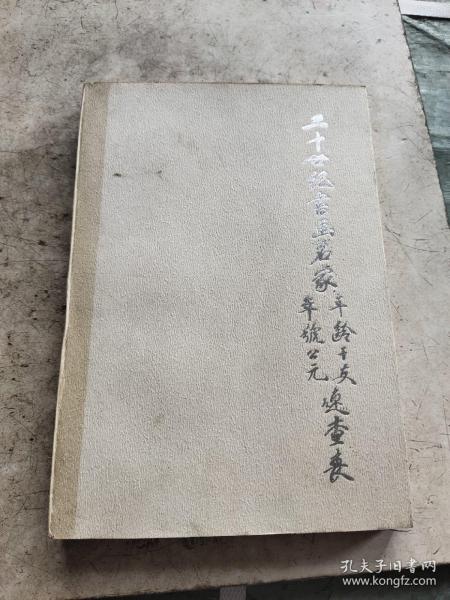 二十世纪书画名家年龄干支
年號公元速查表
孔夫子旧书网
www.kongfz.com